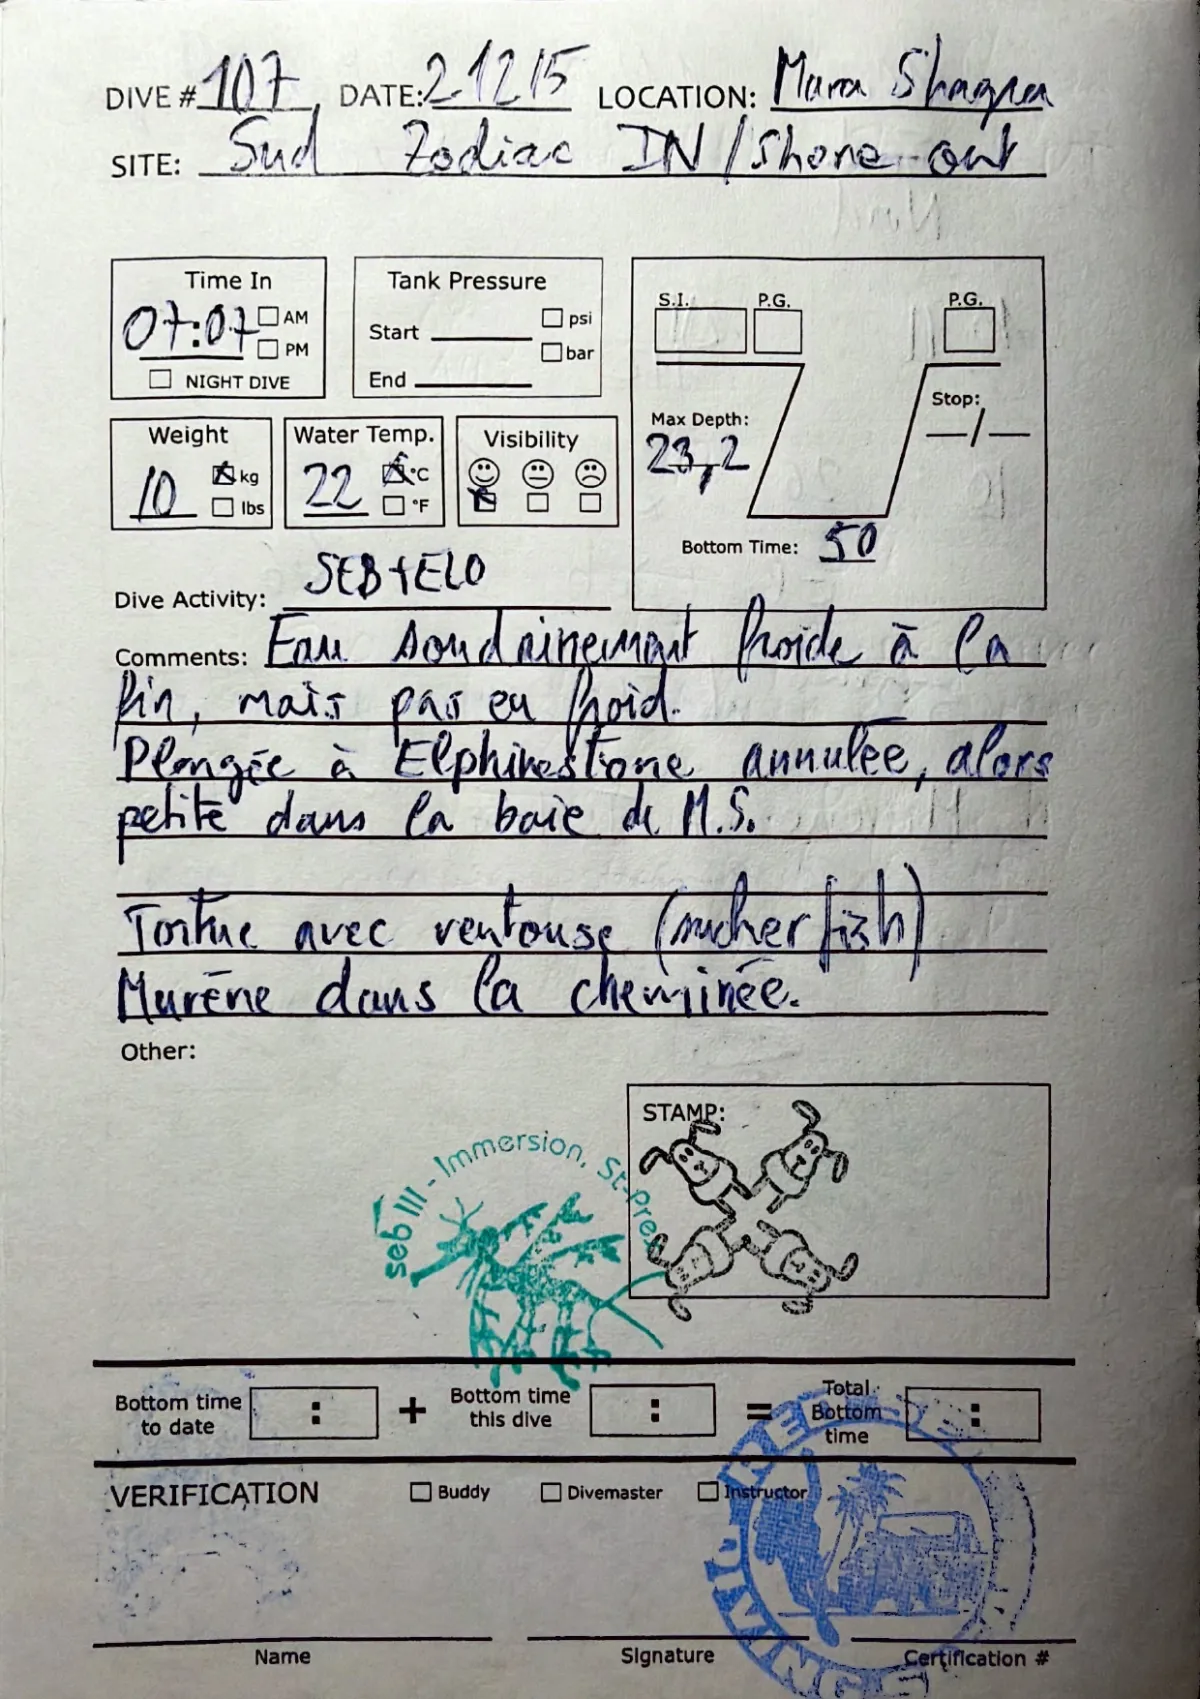 DIVE # 107 DATE: 21215 LOCATION: Marsa Shagra
SITE: Sud Zodiac IN / Shore out
Time In
07:07 AM
PM
NIGHT DIVE
Tank Pressure
Start psi
bar
End
S.I. P.G. P.G.
Max Depth:
23,2
Stop:
Bottom Time: 50
Weight
10 kg
lbs
Water Temp.
22 °C
°F
Visibility
Dive Activity: SEB + ELO
Comments: Eau soudainement froide à la
fin, mais pas eu froid.
Plongée à Elphinestone annulée, alors
petite dans la baie de M.S.
Tortue avec ventouse (sucher fish)
Murène dans la cheminée.
Other:
STAMP:
seb III - Immersion, St-Prex
Bottom time
to date : + Bottom time
this dive : = Total
Bottom
time :
VERIFICATION Buddy Divemaster Instructor
Name Signature Certification #